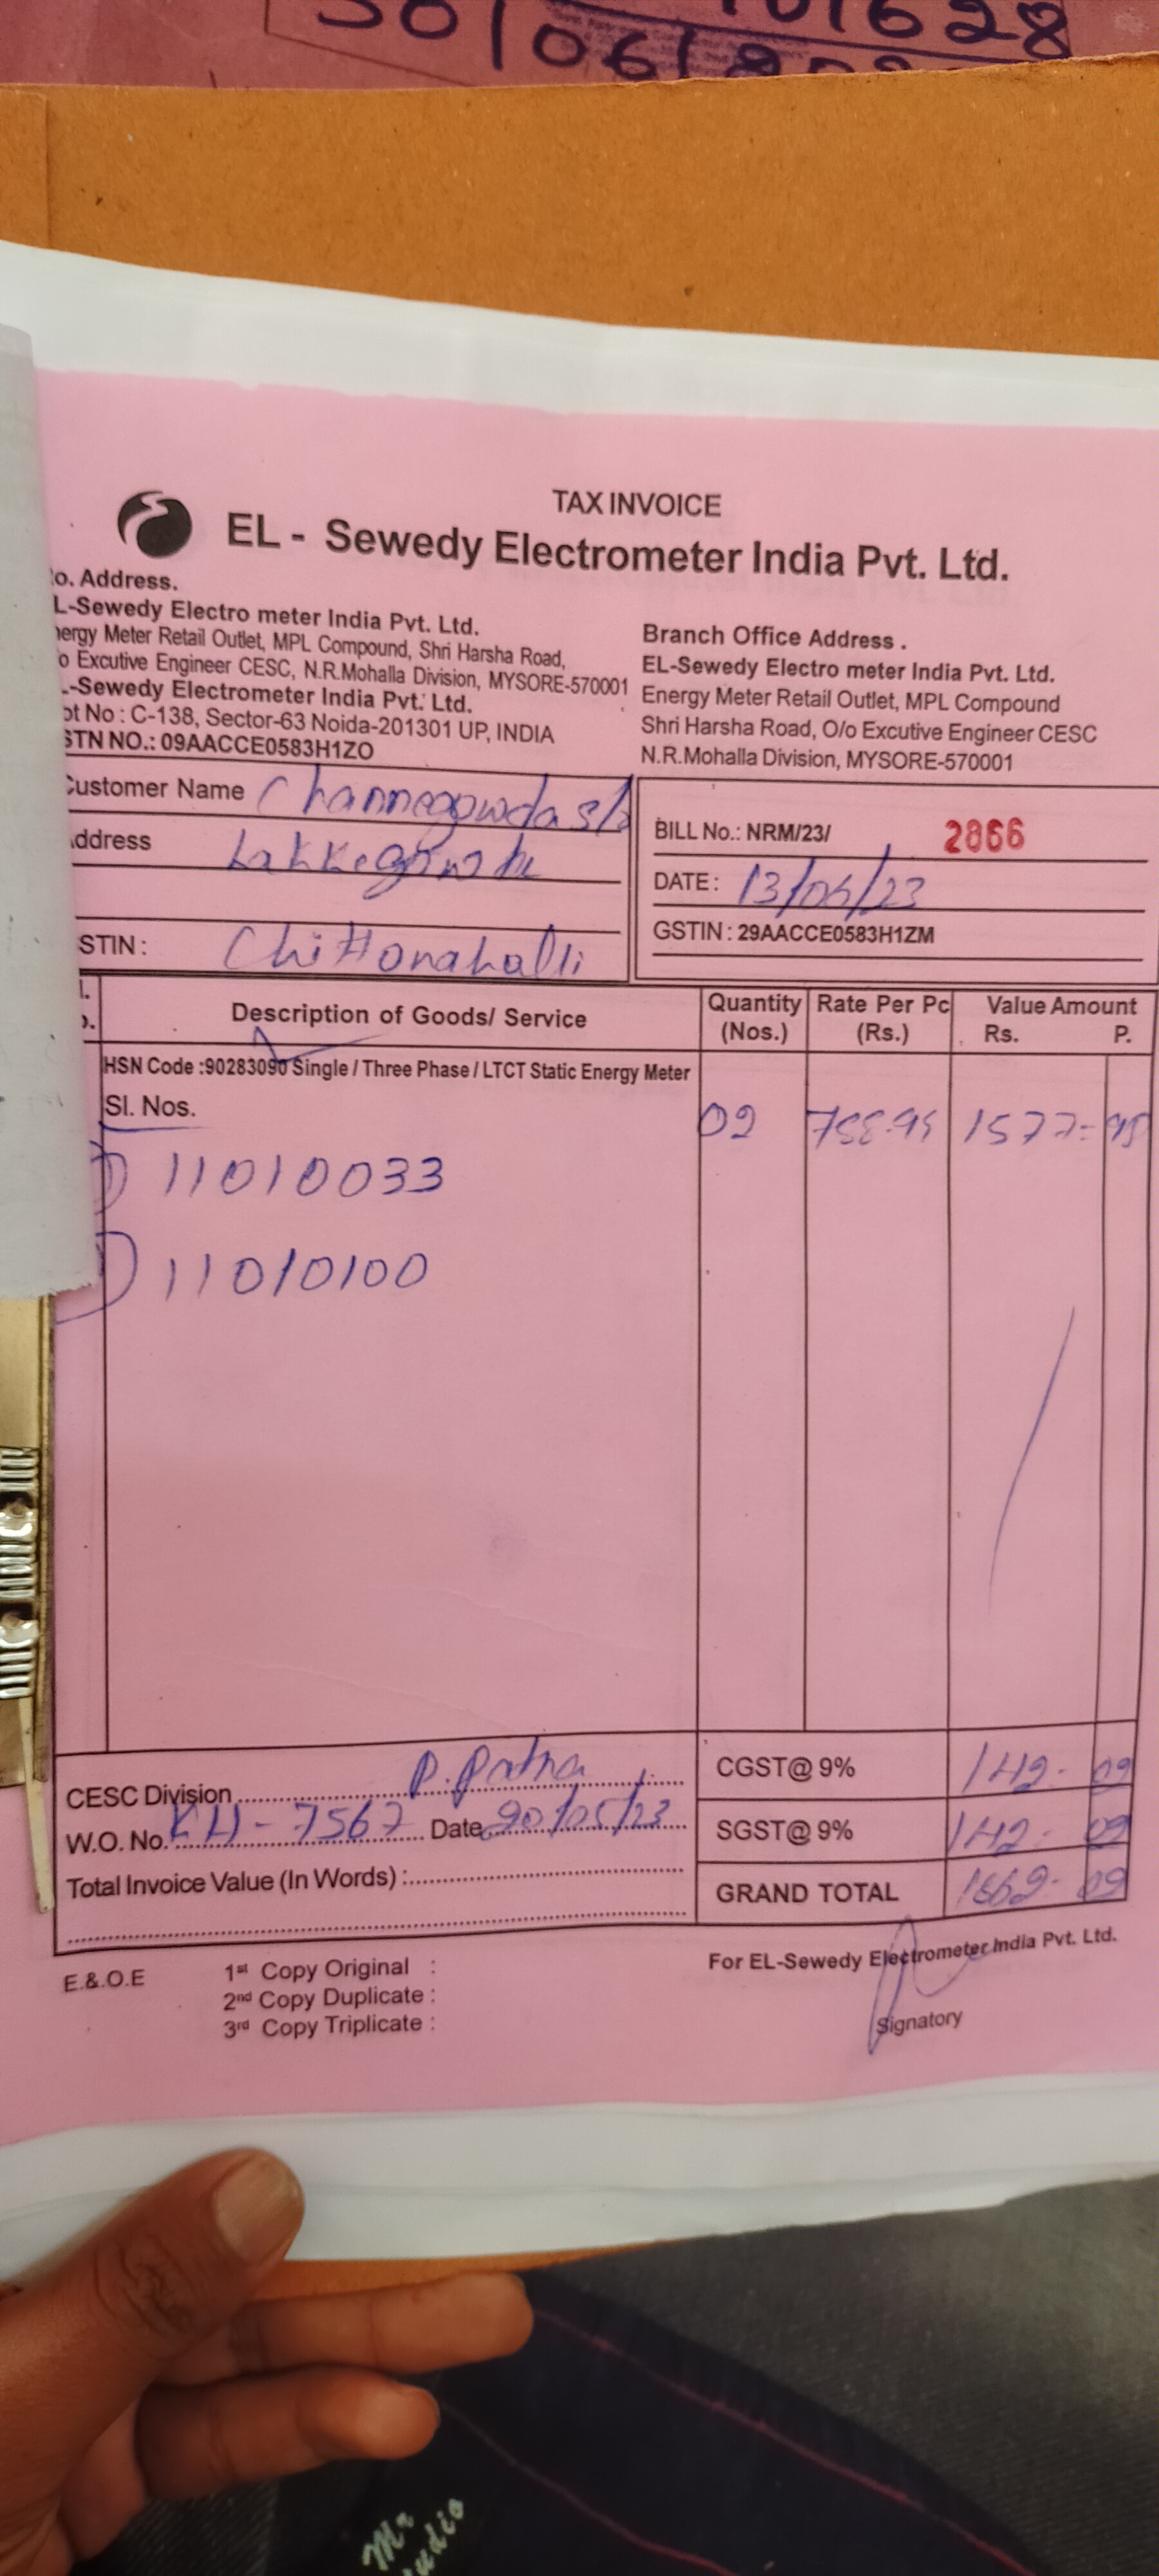 101628
30/06/202
TAX INVOICE
EL - Sewedy Electrometer India Pvt. Ltd.
o. Address.
L-Sewedy Electro meter India Pvt. Ltd.
nergy Meter Retail Outlet, MPL Compound, Shri Harsha Road,
o Excutive Engineer CESC, N.R.Mohalla Division, MYSORE-570001
.-Sewedy Electrometer India Pvt. Ltd.
ot No : C-138, Sector-63 Noida-201301 UP, INDIA
STN NO.: 09AACCE0583H1ZO
Branch Office Address .
EL-Sewedy Electro meter India Pvt. Ltd.
Energy Meter Retail Outlet, MPL Compound
Shri Harsha Road, O/o Excutive Engineer CESC
N.R.Mohalla Division, MYSORE-570001
Customer Name Channegowda s/o
Address Lakkegowda
STIN : Chittanahalli
BILL No.: NRM/23/ 2866
DATE : 13/06/23
GSTIN : 29AACCE0583H1ZM
Description of Goods/ Service
Quantity (Nos.)
Rate Per Pc (Rs.)
Value Amount
Rs. P.
HSN Code :90283090 Single / Three Phase / LTCT Static Energy Meter
Sl. Nos.
02 1577=
11010033
11010100
CESC Division P. Patna
W.O. No. KH-7567 Date 20/05/23
Total Invoice Value (In Words) :
CGST@ 9% 142- 09
SGST@ 9% 142- 09
GRAND TOTAL 09
E.&.O.E
1st Copy Original :
2nd Copy Duplicate :
3rd Copy Triplicate :
For EL-Sewedy Electrometer India Pvt. Ltd.
Signatory
Mr
udio